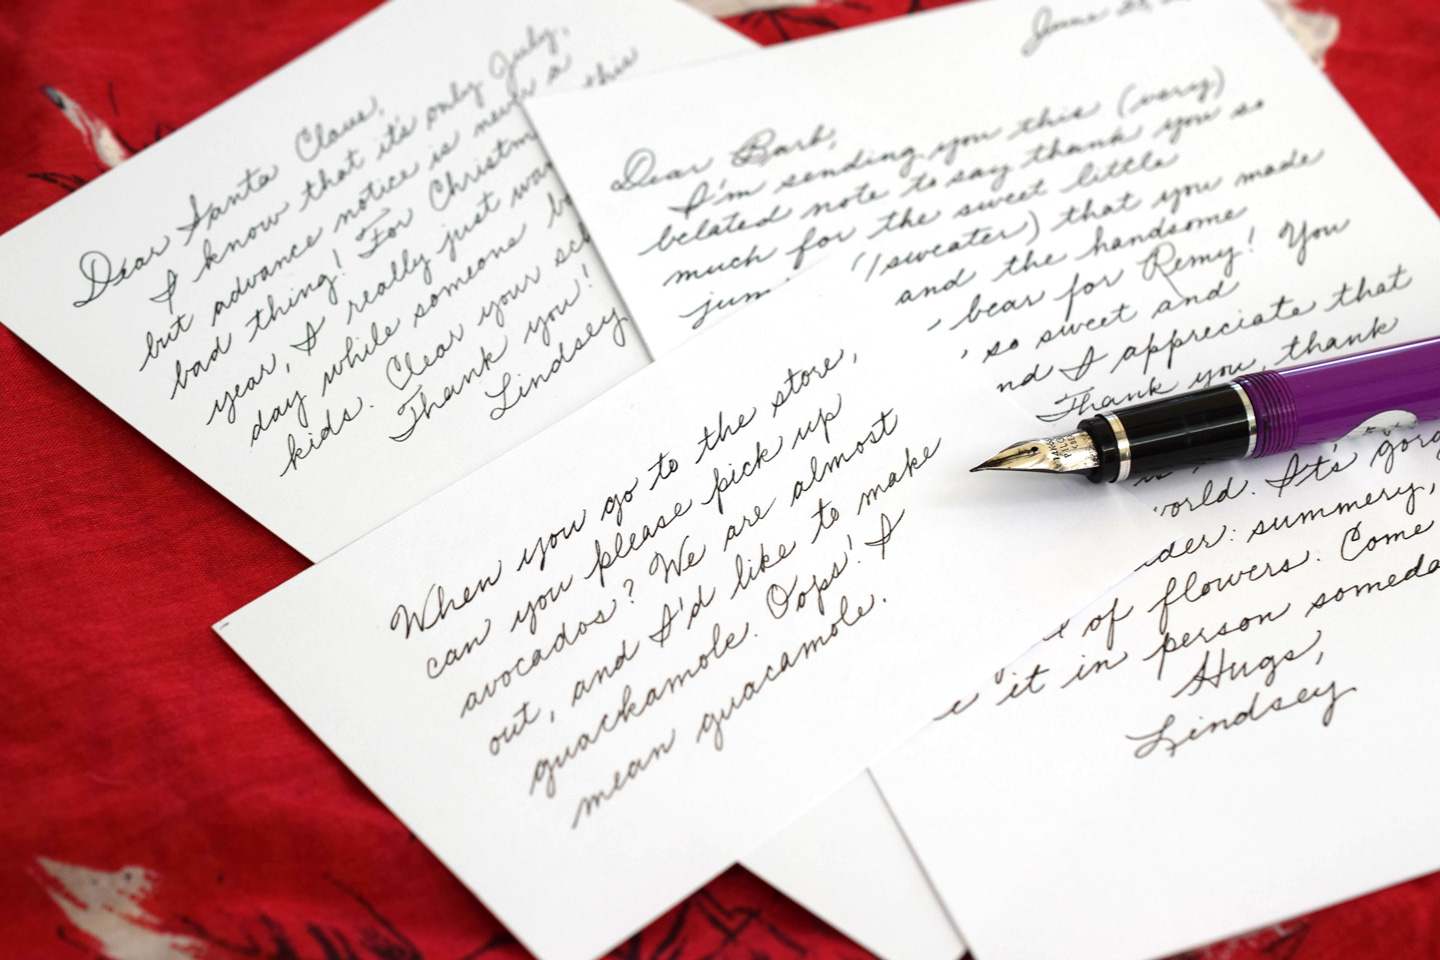 Dear Santa Claus,
I know that it's only July,
but advance notice is never a
bad thing! For Christm this
year, I really just wa
day while someone b
kids. Clear your sc
Thank you!
Lindsey
June
Dear Barb,
I'm sending you this (very)
belated note to say thank you so
much for the sweet little
jum (sweater) that you made
and the handsome
bear for Remy! You
so sweet and
nd I appreciate that
Thank you, thank
orld. It's gorg
der: summery,
of flowers. Come
it in person someda
Hugs,
Lindsey
When you go to the store,
can you please pick up
avocados? We are almost
out, and I'd like to make
guackamole. Oops! I
mean guacamole.
PILOT